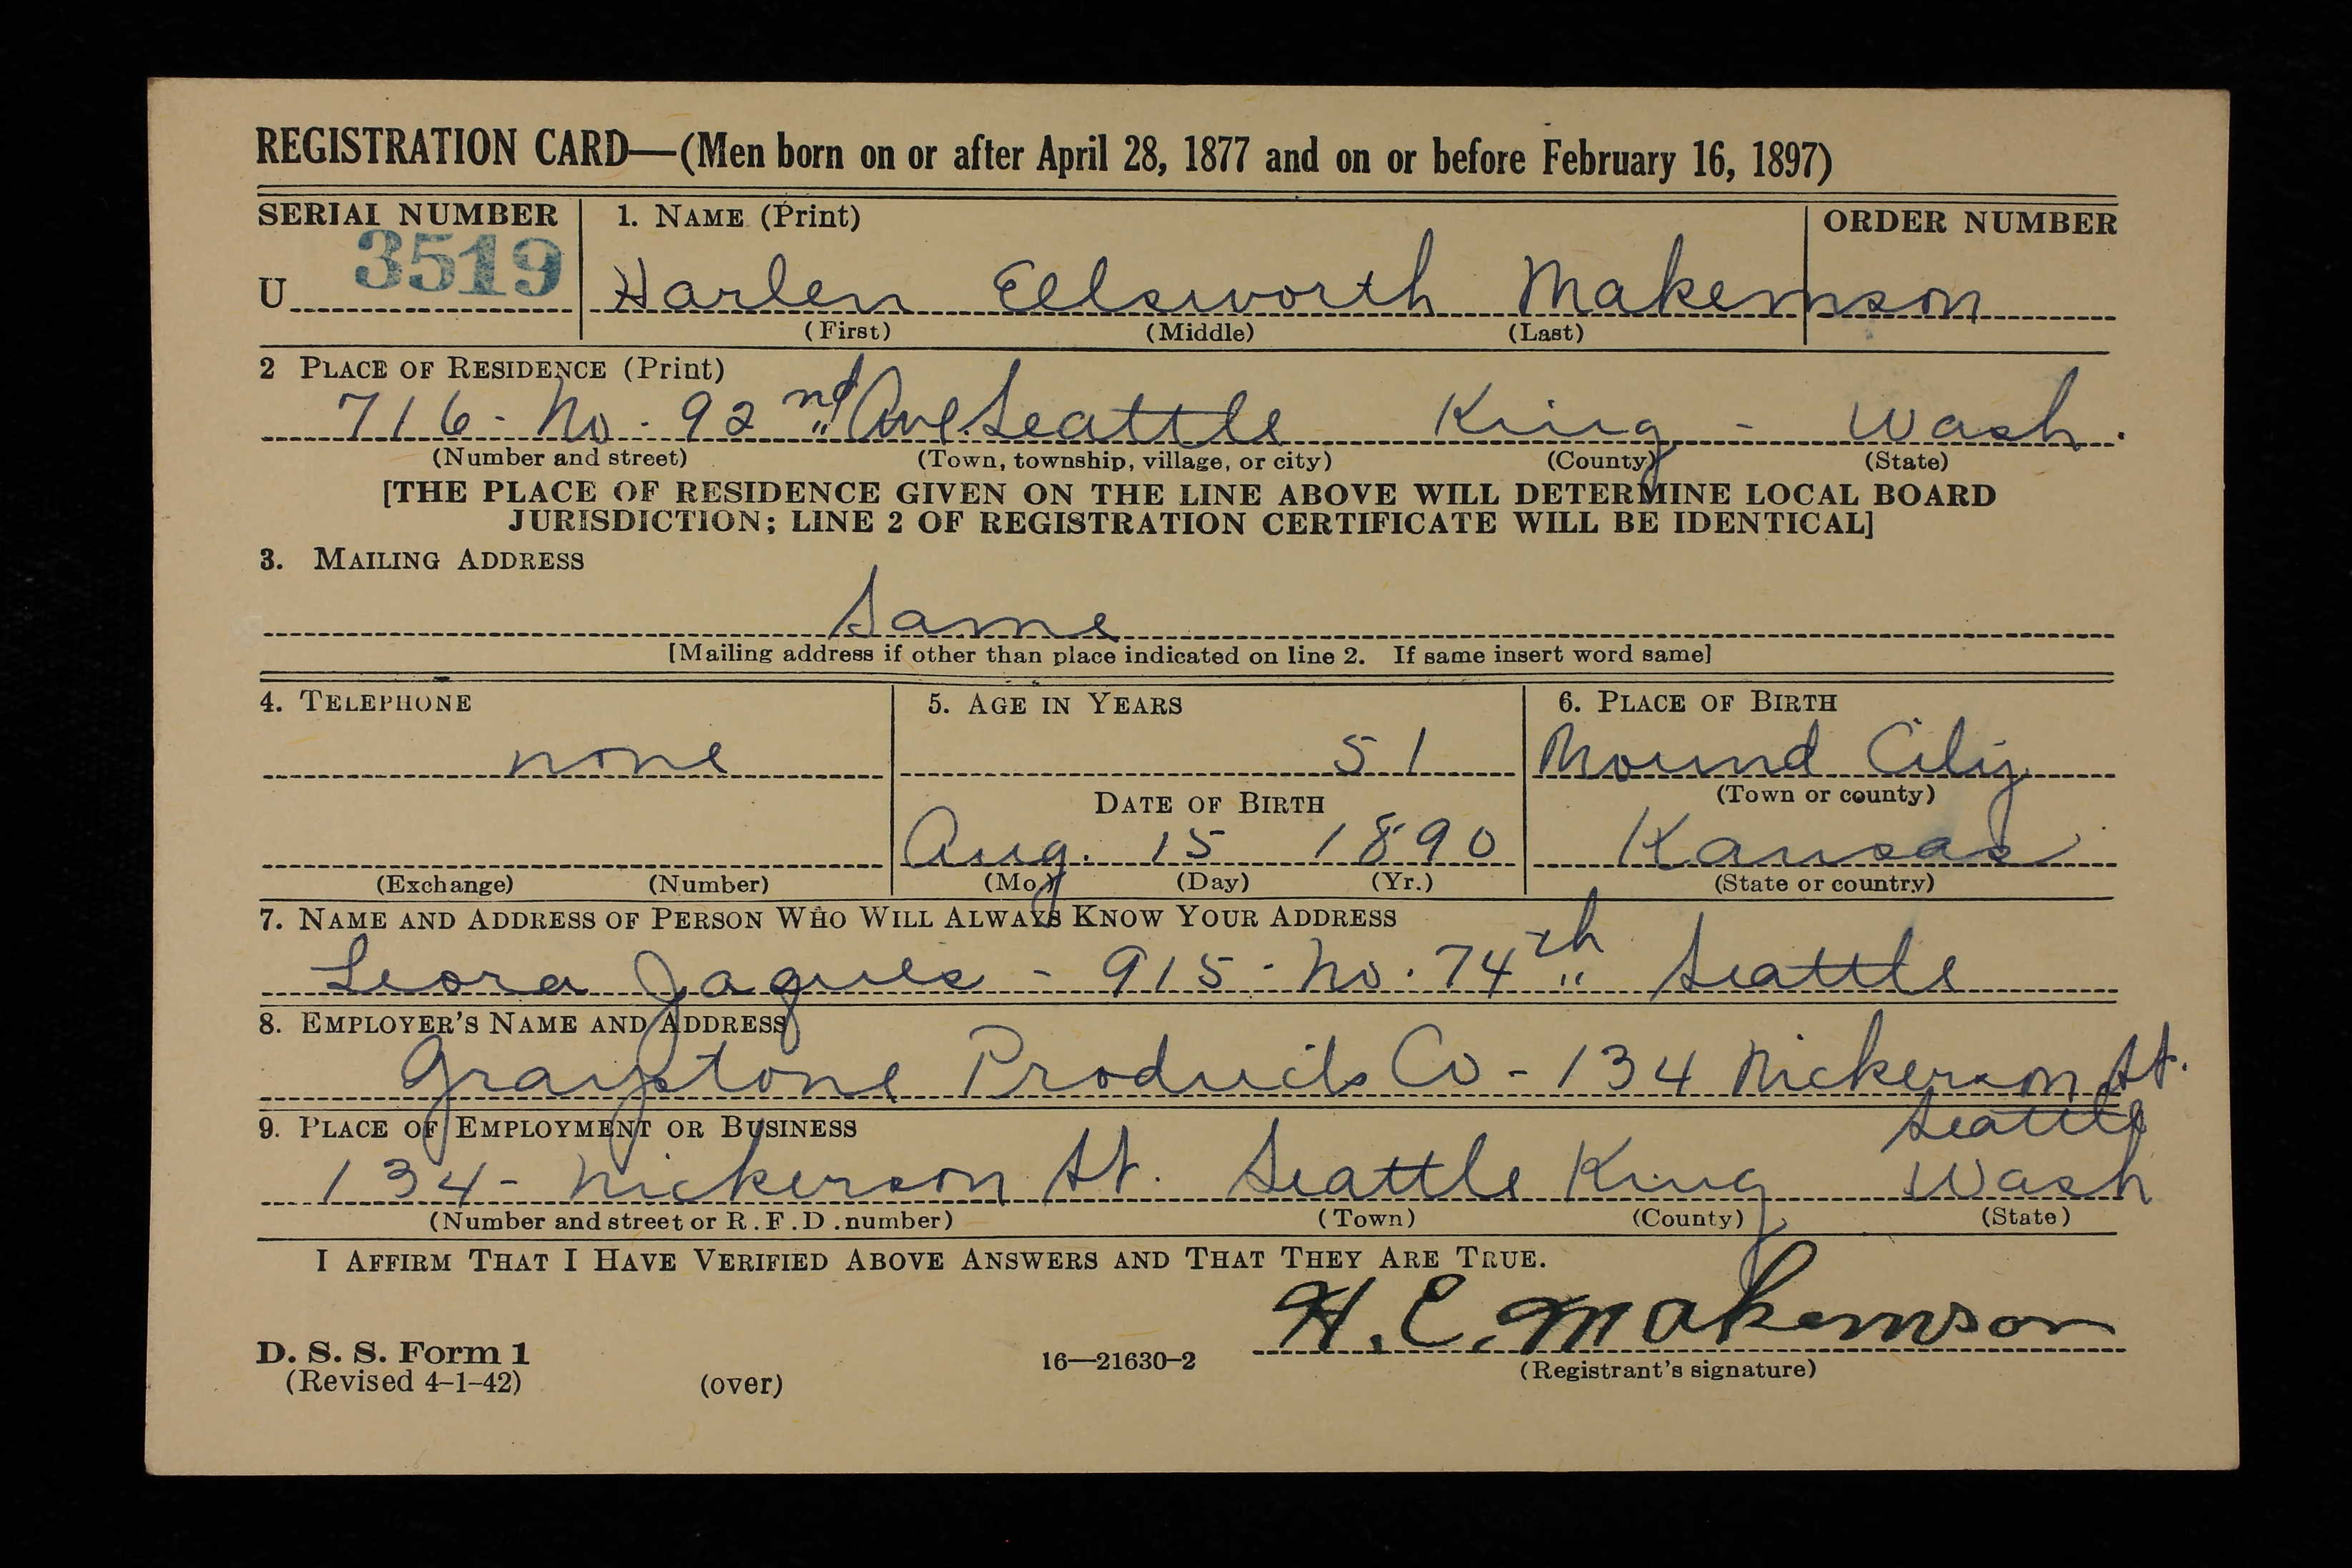 REGISTRATION CARD—(Men born on or after April 28, 1877 and on or before February 16, 1897)
SERIAL NUMBER 1. NAME (Print) ORDER NUMBER
U 3519 Harlen Ellsworth Makemson
(First) (Middle) (Last)
2 PLACE OF RESIDENCE (Print)
716 - No - 92nd Ave. Seattle King - Wash.
(Number and street) (Town, township, village, or city) (County) (State)
[THE PLACE OF RESIDENCE GIVEN ON THE LINE ABOVE WILL DETERMINE LOCAL BOARD
JURISDICTION; LINE 2 OF REGISTRATION CERTIFICATE WILL BE IDENTICAL]
3. MAILING ADDRESS
Same
[Mailing address if other than place indicated on line 2. If same insert word same]
4. TELEPHONE 5. AGE IN YEARS 6. PLACE OF BIRTH
none 51 Mound City
DATE OF BIRTH (Town or county)
Aug. 15 1890 Kansas
(Exchange) (Number) (Mo.) (Day) (Yr.) (State or country)
7. NAME AND ADDRESS OF PERSON WHO WILL ALWAYS KNOW YOUR ADDRESS
Leora Jaques - 915 - No. 74th Seattle
8. EMPLOYER'S NAME AND ADDRESS
Graystone Products Co - 134 Nickerson St.
Seattle
9. PLACE OF EMPLOYMENT OR BUSINESS
134 - Nickerson St. Seattle King Wash
(Number and street or R.F.D. number) (Town) (County) (State)
I AFFIRM THAT I HAVE VERIFIED ABOVE ANSWERS AND THAT THEY ARE TRUE.
H. E. Makemson
D. S. S. Form 1 16—21630-2 (Registrant's signature)
(Revised 4-1-42) (over)